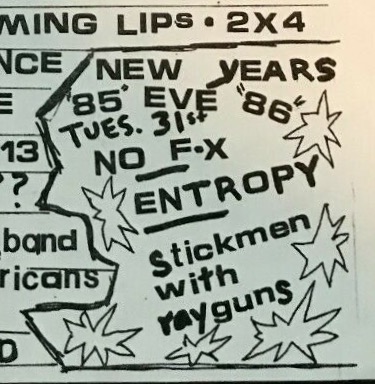 MING LIPS • 2X4
NCE
NEW YEARS
E
'85' EVE "86"
TUES. 31st
13
NO F-X
??
ENTROPY
band
Stickmen
ricans
with
rayguns
D